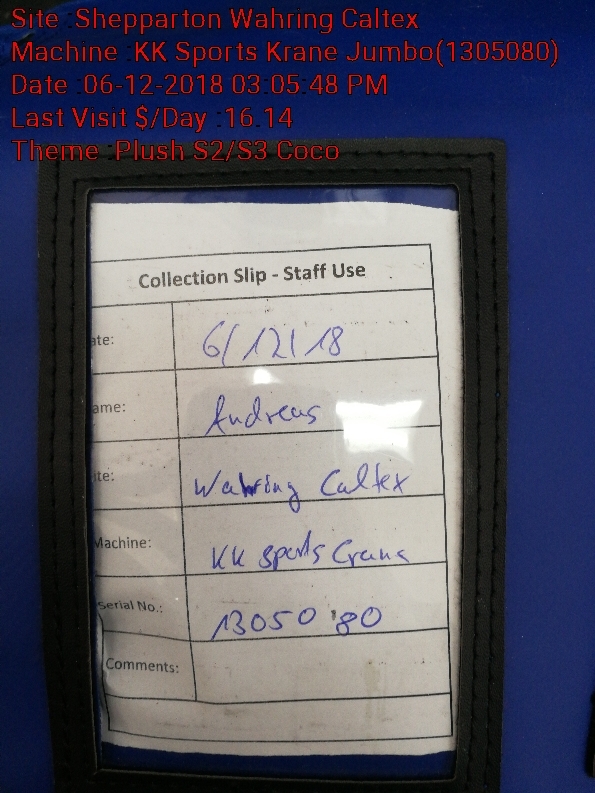 Site :Shepparton Wahring Caltex
Machine :KK Sports Krane Jumbo(1305080)
Date :06-12-2018 03:05:48 PM
Last Visit $/Day :16.14
Theme :Plush S2/S3 Coco
Collection Slip - Staff Use
ate: 6/12/18
ame: Andreas
ite: Wahring Caltex
Machine: KK Sports Crane
Serial No.: 13050 80
Comments: